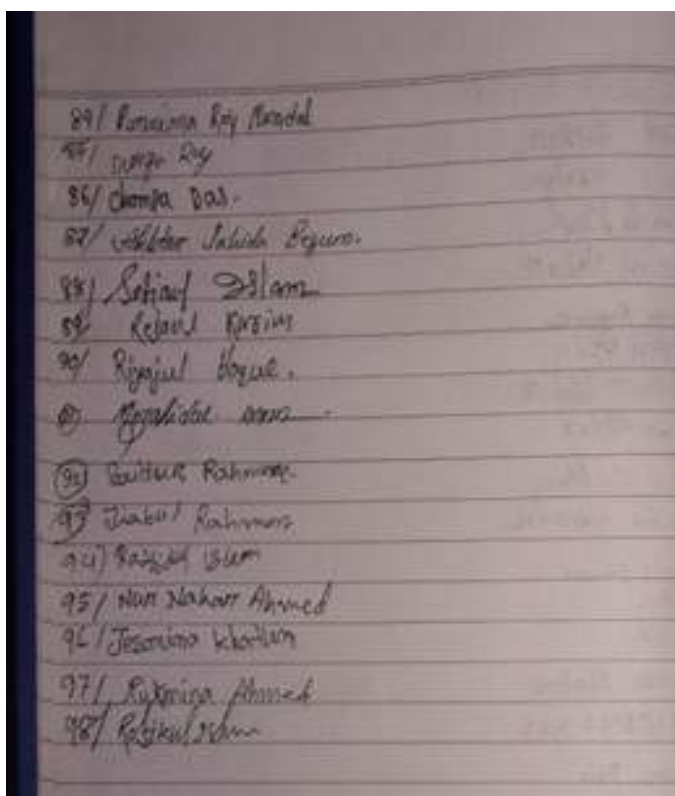 84/ Purnima Roy Mandal
85/ Roy
86/ Champa Das.
87/ Akhtar Jahida Begum.
88/ Islam
89/ Rejaul Karim
90/ Riyajul Hoque.
91
92 Saidur Rahman
93 Rahman
94) Islam
95/ Nur Nahar Ahmed
96/ Jesmina Khatun
97/ Rukmina Ahmed
98/ Rafikul Islam